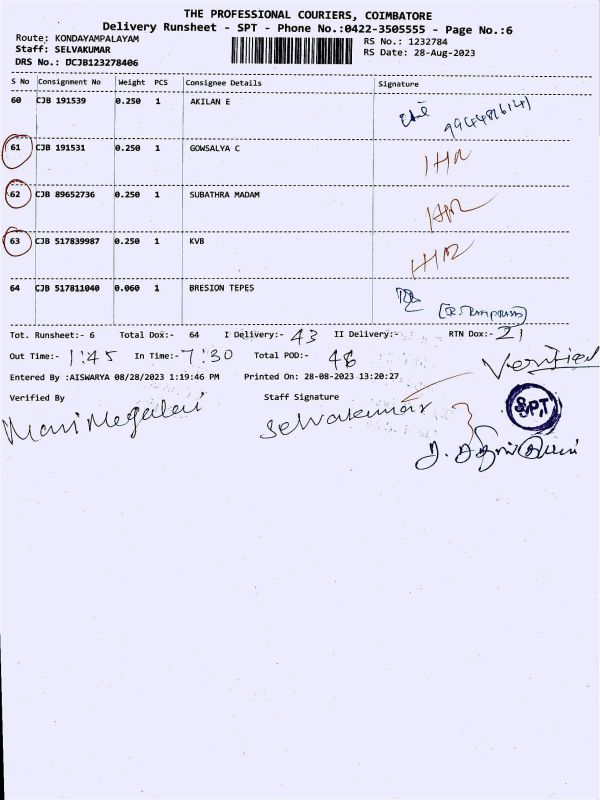 THE PROFESSIONAL COURIERS, COIMBATORE
Delivery Runsheet - SPT - Phone No.:0422-3505555 - Page No.:6
Route: KONDAYAMPALAYAM
RS No.: 1232784
Staff: SELVAKUMAR
RS Date: 28-Aug-2023
DRS No.: DCJB123278406
S No Consignment No Weight PCS Consignee Details Signature
60 CJB 191539 0.250 1 AKILAN E
61 CJB 191531 0.250 1 GOWSALYA C
62 CJB 89652736 0.250 1 SUBATHRA MADAM
63 CJB 517839987 0.250 1 KVB
64 CJB 517811040 0.060 1 BRESION TEPES
Tot. Runsheet:- 6 Total Dox:- 64 I Delivery:- 43 II Delivery:- RTN Dox:- 21
Out Time:- 1:45 In Time:- 7:30 Total POD:- 48
Verified
Entered By :AISWARYA 08/28/2023 1:19:46 PM Printed On: 28-08-2023 13:20:27
Verified By Staff Signature
SPT
ManiMegalai Selvakumar